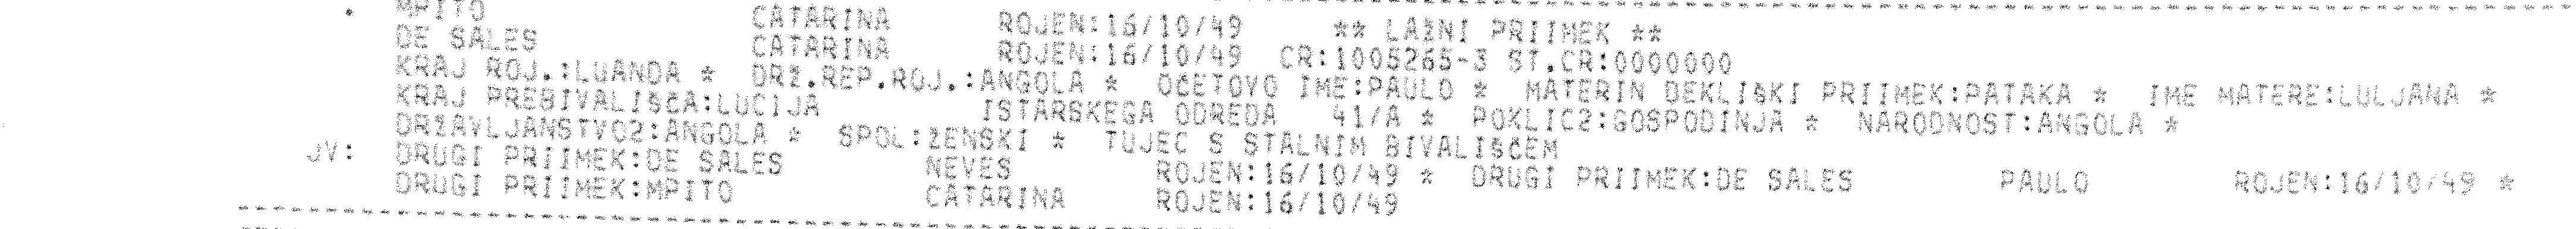 . MPITO CATARINA ROJEN:16/10/49 ** LAŽNI PRIIMEK **
DE SALES CATARINA ROJEN:16/10/49 CR:1005265-3 ST.CR:0000000
KRAJ ROJ.:LUANDA * DRŽ.REP.ROJ.:ANGOLA * OČETOVO IME:PAULO * MATERIN DEKLIŠKI PRIIMEK:PATAKA * IME MATERE:LULJANA *
KRAJ PREBIVALIŠČA:LUCIJA ISTARSKEGA ODREDA 41/A * POKLIC2:GOSPODINJA * NARODNOST:ANGOLA *
DRŽAVLJANSTVO2:ANGOLA * SPOL:ŽENSKI * TUJEC S STALNIM BIVALIŠČEM
JV: DRUGI PRIIMEK:DE SALES NEVES ROJEN:16/10/49 * DRUGI PRIIMEK:DE SALES PAULO ROJEN:16/10/49 *
DRUGI PRIIMEK:MPITO CATARINA ROJEN:16/10/49